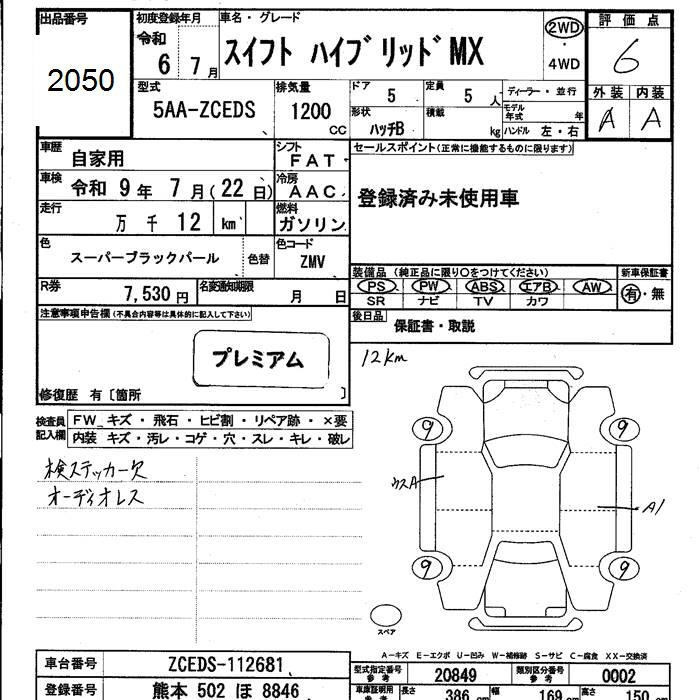 出品番号
2050
初度登録年月
令和
6 7月
車名・グレード
スイフト ハイブリッド MX
2WD
・
4WD
評価点
6
外装 内装
A A
型式
5AA-ZCEDS
排気量
1200
CC
ドア
5
定員
5 人
形状
ハッチB
積載
kg
ディーラー・並行
モデル年式 年
ハンドル 左・右
車歴
自家用
シフト
FAT
セールスポイント(正常に機能するものに限ります)
登録済み未使用車
車検
令和 9年 7月(22日)
冷房
AAC
走行
万 千 12 km
燃料
ガソリン
色
スーパーブラックパール
色替
色コード
ZMV
装備品 (純正品に限り○をつけてください)
PS PW ABS エアB AW
SR ナビ TV カワ
新車保証書
有・無
R券
7,530円
名変通知期限
月 日
後日品
保証書・取説
注意事項申告欄(不具合内容等は具体的に記入して下さい)
プレミアム
修復歴 有〔箇所 〕
12km
検査員記入欄
FW キズ・飛石・ヒビ割・リペア跡・×要
内装 キズ・汚レ・コゲ・穴・スレ・キレ・破レ
検ステッカー欠
オーディオレス
9 9
ウスA
A1
9 9
スペア
A-キズ E-エクボ U-凹み W-補修跡 S-サビ C-腐食 XX-交換済
車台番号
ZCEDS-112681
登録番号
熊本 502 ほ 8846
型式指定番号
参考
20849
類別区分番号
参考
0002
車庫証明用
参考
長さ 386 cm 幅 169 cm 高さ 150 cm